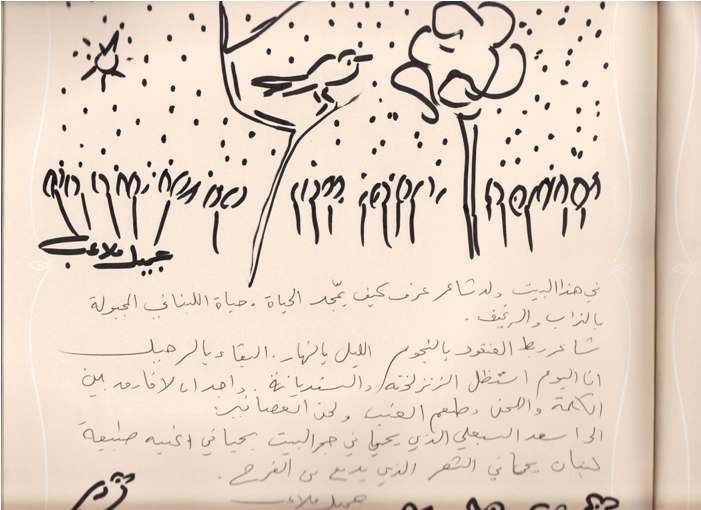 جميل ملاعب
في هذا البيت ولد شاعر عرف كيف يمّجد الحياة. حياة اللبناني المجبولة
بالتراب والرغيف.
شاعر ربط العنقود بالنجوم الليل بالنهار. البقاء بالرحيل
انا اليوم استظل الزنزلخته والسنديانة. واجد ان لا فارق بين
الكلمة واللحن وطعم العنب ولحن العصافير.
الى اسعد السبعلي الذي يحيا في حجر البيت يحيا في اغنيه
لبنان يحيا في الشعر الذي من الفرح.
جميل ملاعب